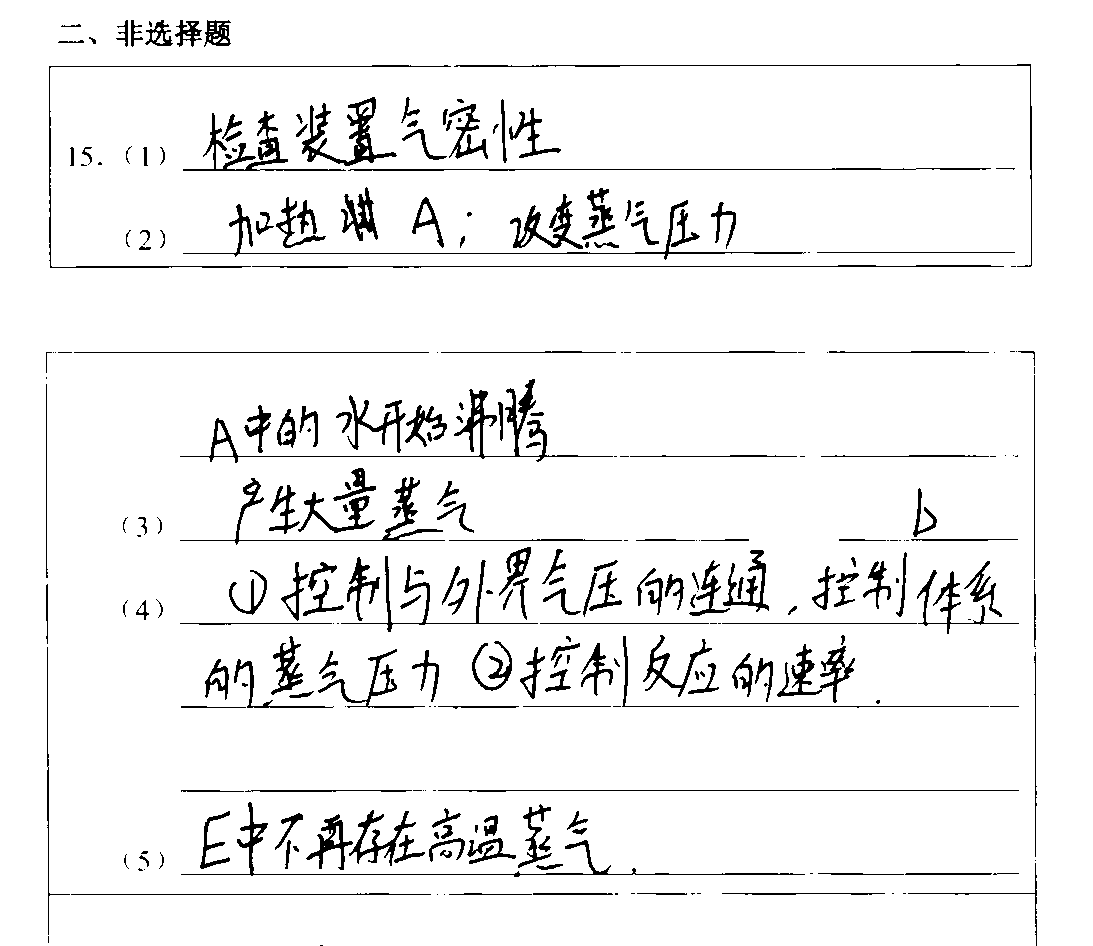 二、非选择题
15.（1）检查装置气密性
（2）加热 A；改变蒸气压力
A中的水开始沸腾
（3）产生大量蒸气 b
（4）①控制与外界气压的连通，控制体系
的蒸气压力 ②控制反应的速率.
（5）E中不再存在高温蒸气.